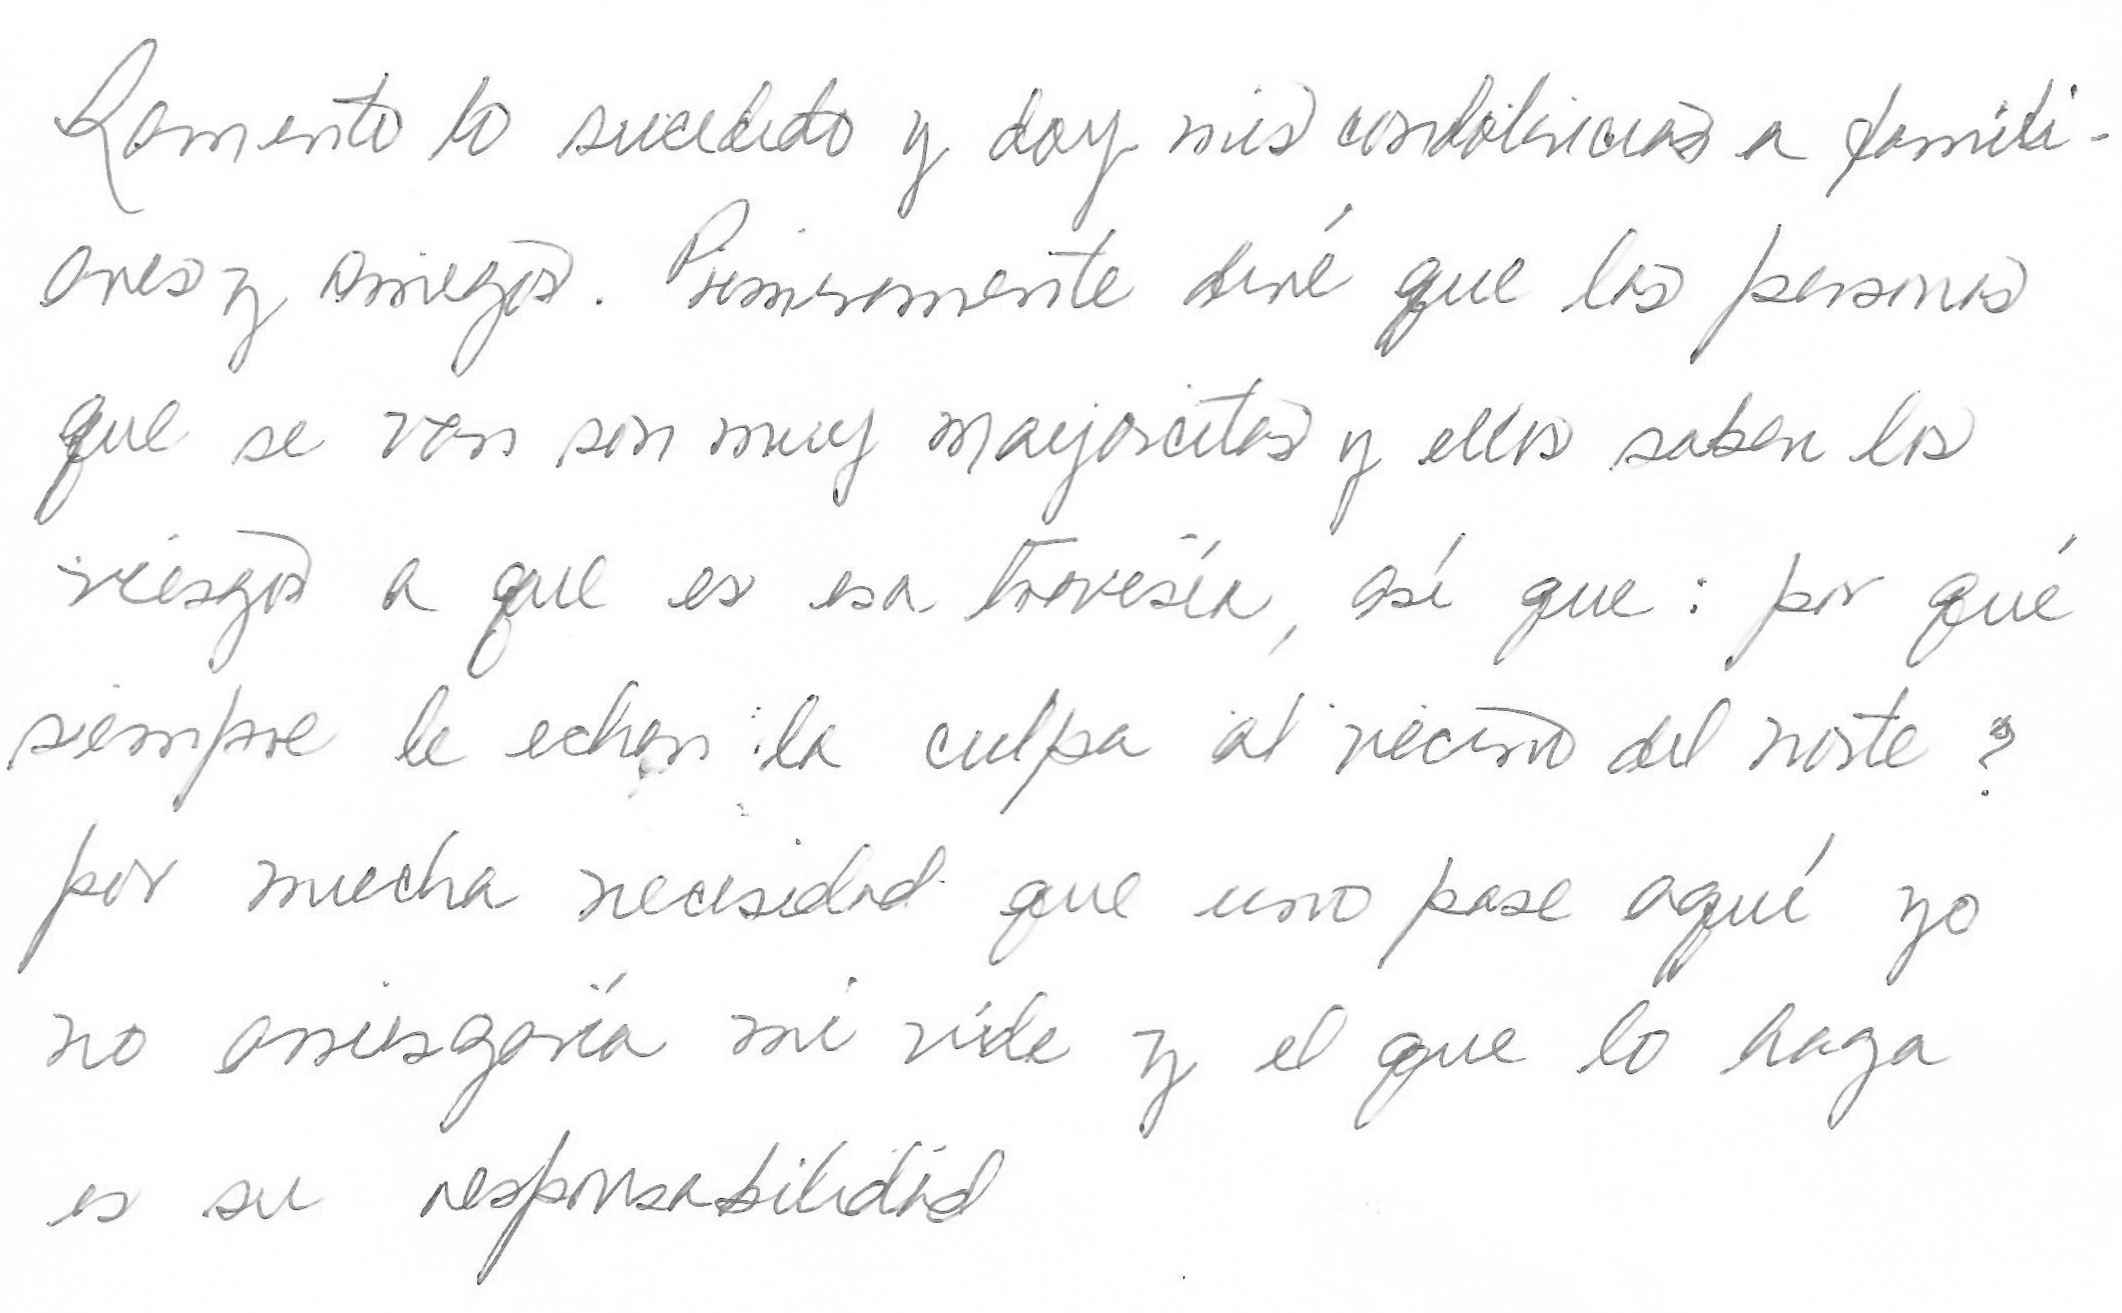 Lamento lo sucedido y doy mis condolencias a famili-
ares y amigos. Primeramente diré que las personas
que se van son muy mayorcitas y ellos saben los
riesgos a que es esa travesía, así que: por qué
siempre le echan la culpa al vecino del norte?
por mucha necesidad que uno pase aquí yo
no arriesgaría mi vida y el que lo haga
es su responsabilidad